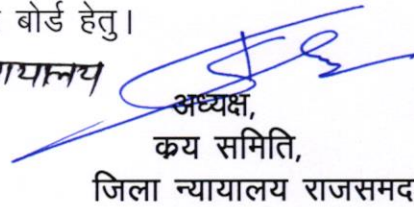 बोर्ड हेतु।
अध्यक्ष,
क्रय समिति,
जिला न्यायालय राजसमद